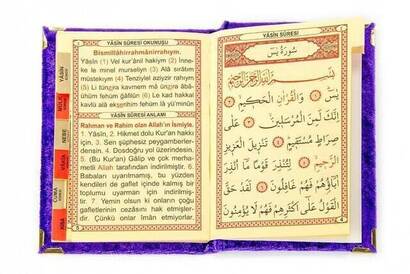 YÂSÎN SÛRESİ OKUNUŞU
Bismillâhirrahmânirrahıym.
Yâsîn (1) Vel kur'ânil hakiym (2) İnne-
ke le minel murseliyn (3) Alâ sırâtım
müstekıym (4) Tenziylel aziyzir rahıym
(5) Li tünzira kavmem mâ ünzira âbâ-
ühüm fehüm ğâfilûn (6) Le kad hakkal
kavlü alâ ekserihim fehüm lâ yü'minûn
YÂSÎN SÛRESİ ANLAMI
Rahman ve Rahim olan Allah'ın ismiyle.
1. Yâsîn, 2. Hikmet dolu Kur'an hakkı
için, 3. Sen şüphesiz peygamberler-
densin. 4. Dosdoğru yol üzerindesin.
5. (Bu Kur'an) Gâlip ve çok merha-
metli Allah tarafından indirilmiştir. 6.
Babaları uyarılmamış, bu yüzden
kendileri de gaflet içinde kalmış bir
toplumu uyarman için indirilmiş-
tir. 7 Yemin olsun ki onların çoğu
gafletlerinin cezasını hak etmişler-
dir. Çünkü onlar îman etmiyorlar.
YÂSÎN
MÜLK
NEBE
VÂKIA
CUMA
DUA
سُورَةُ يٰسٓ
بِسْمِ اللهِ الرَّحْمٰنِ الرَّحِيمِ
يٰسٓ ﴿١﴾ وَالْقُرْاٰنِ الْحَكِيمِ ﴿٢﴾
اِنَّكَ لَمِنَ الْمُرْسَلِينَ ﴿٣﴾ عَلٰى
صِرَاطٍ مُسْتَقِيمٍ ﴿٤﴾ تَنْزِيلَ الْعَزِيزِ
الرَّحِيمِ ﴿٥﴾ لِتُنْذِرَ قَوْمًا مَٓا اُنْذِرَ
اٰبَٓاؤُهُمْ فَهُمْ غَافِلُونَ ﴿٦﴾ لَقَدْ حَقَّ
الْقَوْلُ عَلٰٓى اَكْثَرِهِمْ فَهُمْ لَا يُؤْمِنُونَ